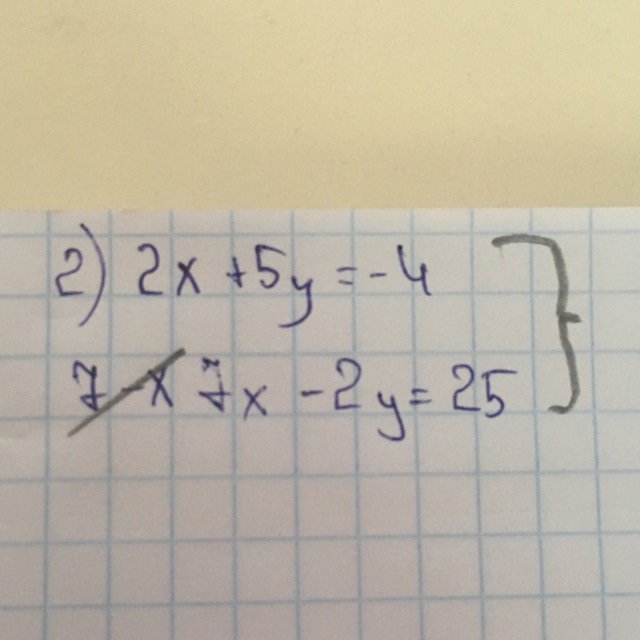 2) 2x + 5y = -4
7x - 2y = 25